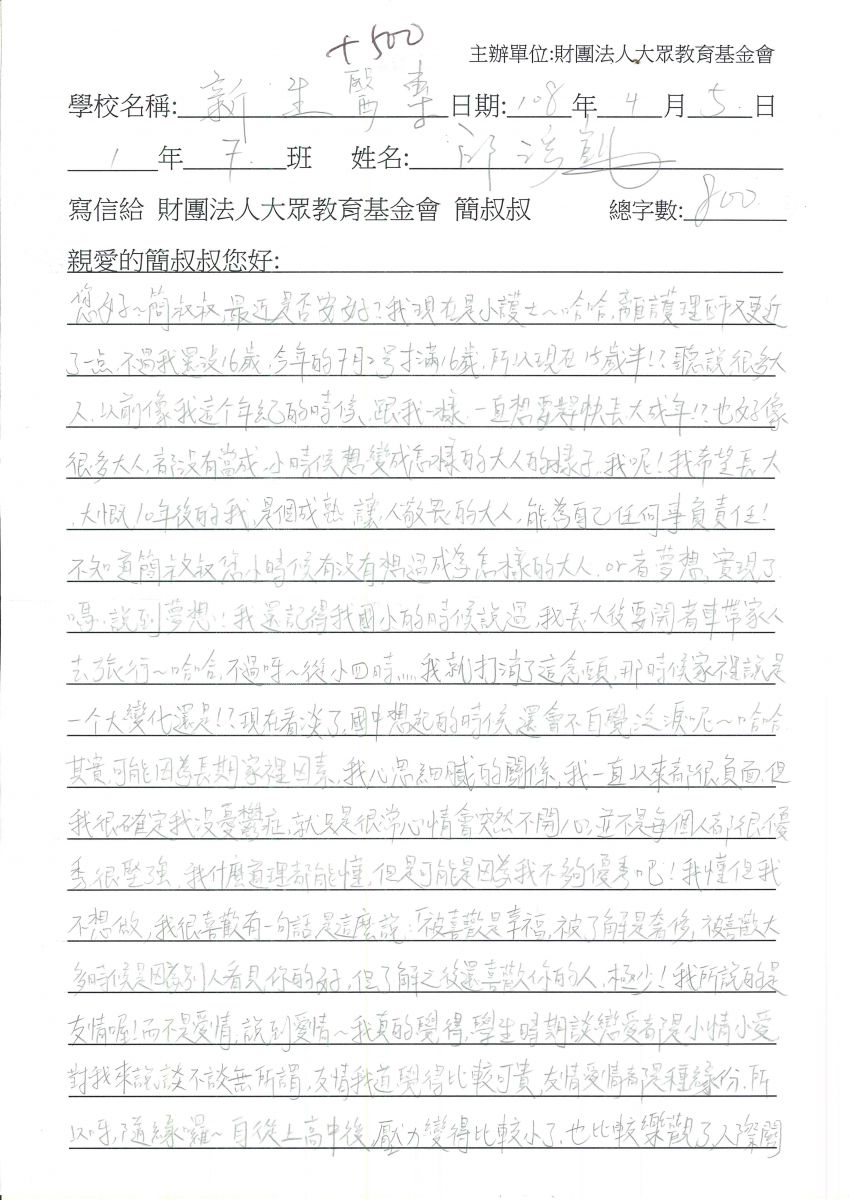 +500
主辦單位:財團法人大眾教育基金會
學校名稱: 新生醫專 日期: 108 年 4 月 5 日
1 年 7 班 姓名: 邱
寫信給 財團法人大眾教育基金會 簡叔叔 總字數: 800
親愛的簡叔叔您好:
您好~簡叔叔,最近是否安好?我現在是小護士~哈哈,離護理師又更近
了一点,不過我還沒16歲,今年的7月2号才滿16歲,所以現在15歲半!?聽說很多大
人,以前像我這个年紀的時候,跟我一樣,一直想要趕快長大成年!?也好像
很多大人,都沒有當成,小時候想變成怎樣的大人的樣子,我呢!我希望長大
,大慨10年後的我,是個成熟,讓人敬畏的大人,能為自己任何事負責任!
不知道簡叔叔您小時候有沒有想過成為怎樣的大人,or者夢想,實現了
嗎,說到夢想!我還記得我國小的時候說過,我長大後要開著車帶家人
去旅行~哈哈,不過呀~後小四時,,,,,我就打消了這念頭,那時候家裡說是
一个大變化還是!?現在看淡了,國中想起的時候還會不自覺泛淚呢~哈哈
其實可能因為長期家裡因素,我心思細膩的關係,我一直以來都很負面,但
我很確定我沒憂鬱症,就只是很常心情會突然不開心,並不是每個人都很優
秀很堅強,我什麼道理都能懂,但是可能是因為我不夠優秀吧!我懂但我
不想做,我很喜歡有一句話是這麼說:「被喜歡是幸福,被了解是奢侈,被喜歡大
多時候是因為別人看見你的好,但了解之後還喜歡你的人,極少!我所說的是
友情喔!而不是愛情,說到愛情~我真的覺得,學生時期談戀愛都是小情小愛
對我來說談不談無所謂,友情我道覺得比較可貴,友情愛情都是種緣份,所
以呀,隨緣囉~自從上高中後,壓力變得比較小了,也比較樂觀了,人際關